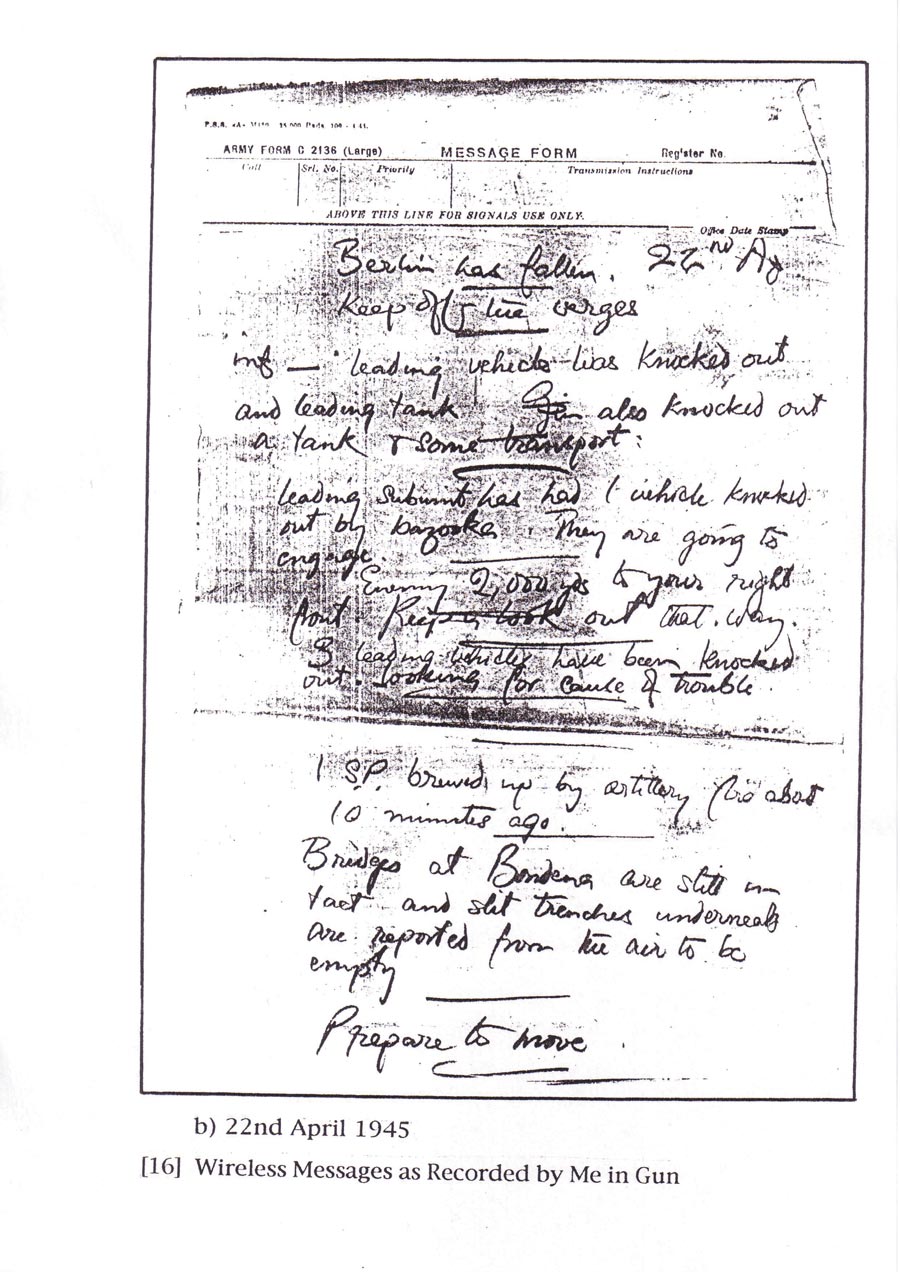 ARMY FORM C 2136 (Large) MESSAGE FORM Register No.
Call Srl. No. Priority Transmission Instructions
ABOVE THIS LINE FOR SIGNALS USE ONLY.
Office Date Stamp
Berlin has fallen. 22nd
Keep off the verges
inf — leading vehicle was knocked out
and leading tank also knocked out
a tank & some transport:
leading subunit has had 1 vehicle knocked
out by bazooka They are going to
engage.
Enemy 2,000 yds to your right
front. Keep a look out that way.
3 leading vehicles have been knocked
out. Looking for cause of trouble.
1 S.P. brewed up by artillery fire about
10 minutes ago.
Bridges at Bondeno are still in
tact and slit trenches underneath
are reported from the air to be
empty
Prepare to move.
b) 22nd April 1945
[16] Wireless Messages as Recorded by Me in Gun